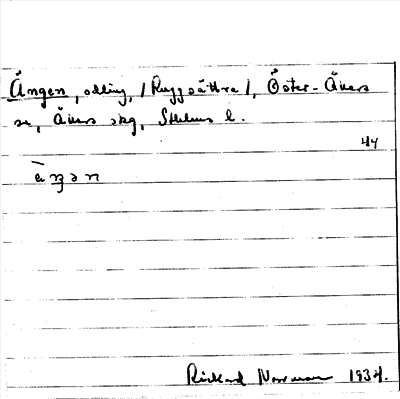 Ängen, odling, /Ruggsättra/, Öster-Åkers
sn, Åkers skg, Sthlms l.
44
Rickard Norrman 1934.